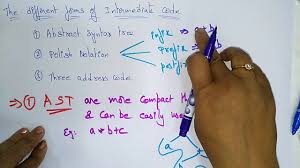 The different forms of Intermediate Code
① Abstract Syntax tree
② Polish Notation
infix ⇒
prefix ⇒
postfix
③ Three address code
⇒ ① AST are more compact
& can be easily
Eg: a * b + c